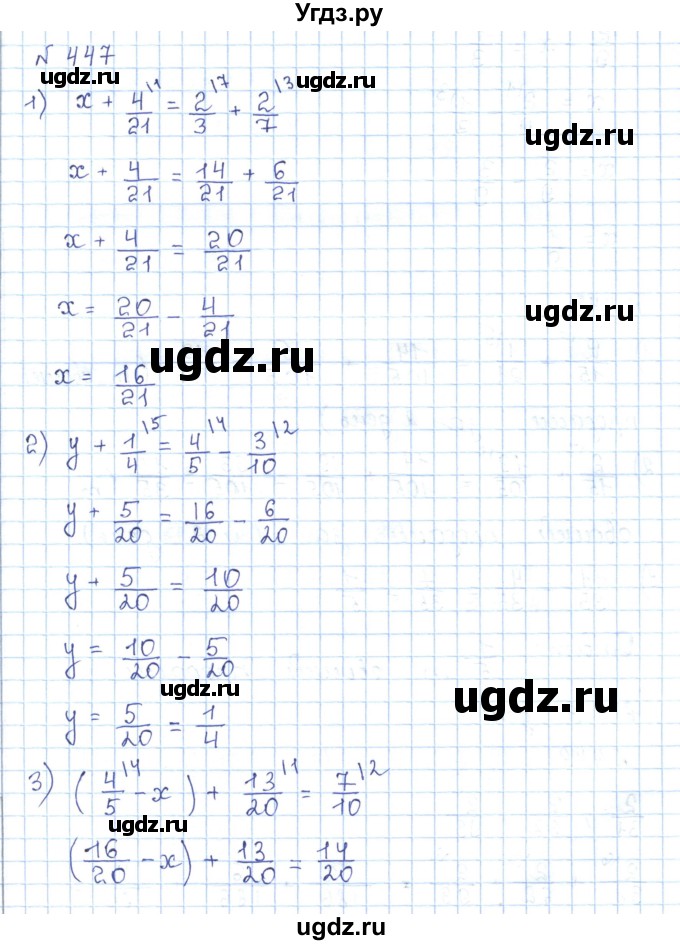 Угдз.ру
№ 447
ugdz.ru
ugdz.ru
1) x + 4/21 |1 = 2/3 |7 + 2/7 |3
ugdz.ru
x + 4/21 = 14/21 + 6/21
x + 4/21 = 20/21
x = 20/21 - 4/21
ugdz.ru
ugdz.ru
x = 16/21
2) y + 1/4 |5 = 4/5 |4 - 3/10 |2
y + 5/20 = 16/20 - 6/20
y + 5/20 = 10/20
y = 10/20 - 5/20
ugdz.ru
ugdz.ru
y = 5/20 = 1/4
3) (4/5 |4 - x) + 13/20 |1 = 7/10 |2
ugdz.ru
(16/20 - x) + 13/20 = 14/20
ugdz.ru